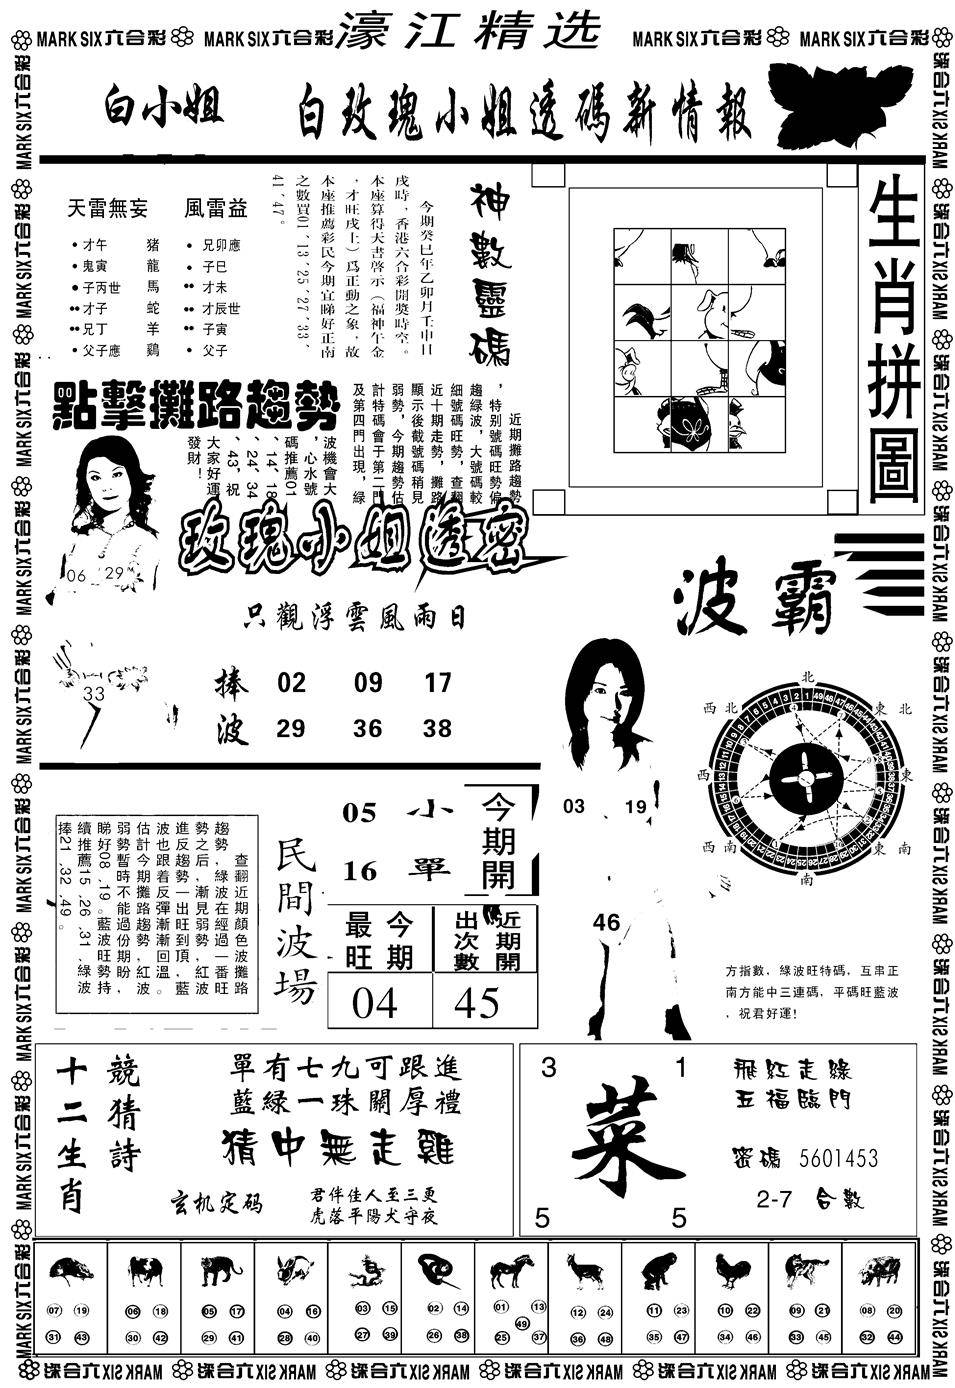 MARK SIX六合彩
MARK SIX六合彩
濠江精选
MARK SIX六合彩
MARK SIX六合彩
白小姐
白玫瑰小姐透碼新情報
天雷無妄
風雷益
•才午 豬
•鬼寅 龍
•子丙世 馬
••才子 蛇
••兄丁 羊
•父子應 鷄
•兄卯應
•子巳
••才未
••才辰世
••子寅
•父子
神數靈碼
今期癸巳年乙卯月壬申日
戌時，香港六合彩開獎時空。
本座算得天書啓示（福神午金
，才旺戌上）爲正動之象，故
本座推薦彩民今期宜睇好正南
之數買01、13、25、27、33、
41、47。
生肖拼圖
點擊攤路趨勢
近期攤路趨勢
，特別號碼旺勢偏
趨綠波，大號碼較
細號碼旺勢，查翻
近十期走勢，攤路
顯示後截號碼稍見
弱勢，今期趨勢估
計特碼會于第二門
及第四門出現，綠
波機會大
，心水號
碼推薦01
、14、18
、24、34
、43，祝
大家好運
發財！
06 29
33
玫瑰小姐透密
只觀浮雲風雨日
捧波
02 09 17
29 36 38
波霸
北
西北
東北
西
東
西南
東南
南
03 19
46
方指數，綠波旺特碼，互串正
南方能中三連碼，平碼旺藍波
，祝君好運！
查翻近期顏色波攤路
趨勢，綠波在經過一番旺
勢之后，漸見弱勢，紅波
進反趨勢一出旺到頂，藍
波也跟着反彈漸漸回溫。
估計今期攤路趨勢，紅波
弱勢暫時不能過份期盼，
睇好08、19。藍波旺勢持
續推薦15、26、31、綠波
捧21、32、49。
民間波場
05 小
16 單
今期開
今期最旺
近期開出次數
04
45
十二生肖
競猜詩
單有七九可跟進
藍緑一珠開厚禮
猜中無走雞
玄机定码
君伴佳人至三更
虎落平陽犬守夜
3
1
菜
5
5
飛紅走綠
五福臨門
密碼 5601453
2-7 合數
07 19 31 43
06 18 30 42
05 17 29 41
04 16 28 40
03 15 27 39
02 14 26 38
01 13 49 25 37
12 24 36 48
11 23 35 47
10 22 34 46
09 21 33 45
08 20 32 44